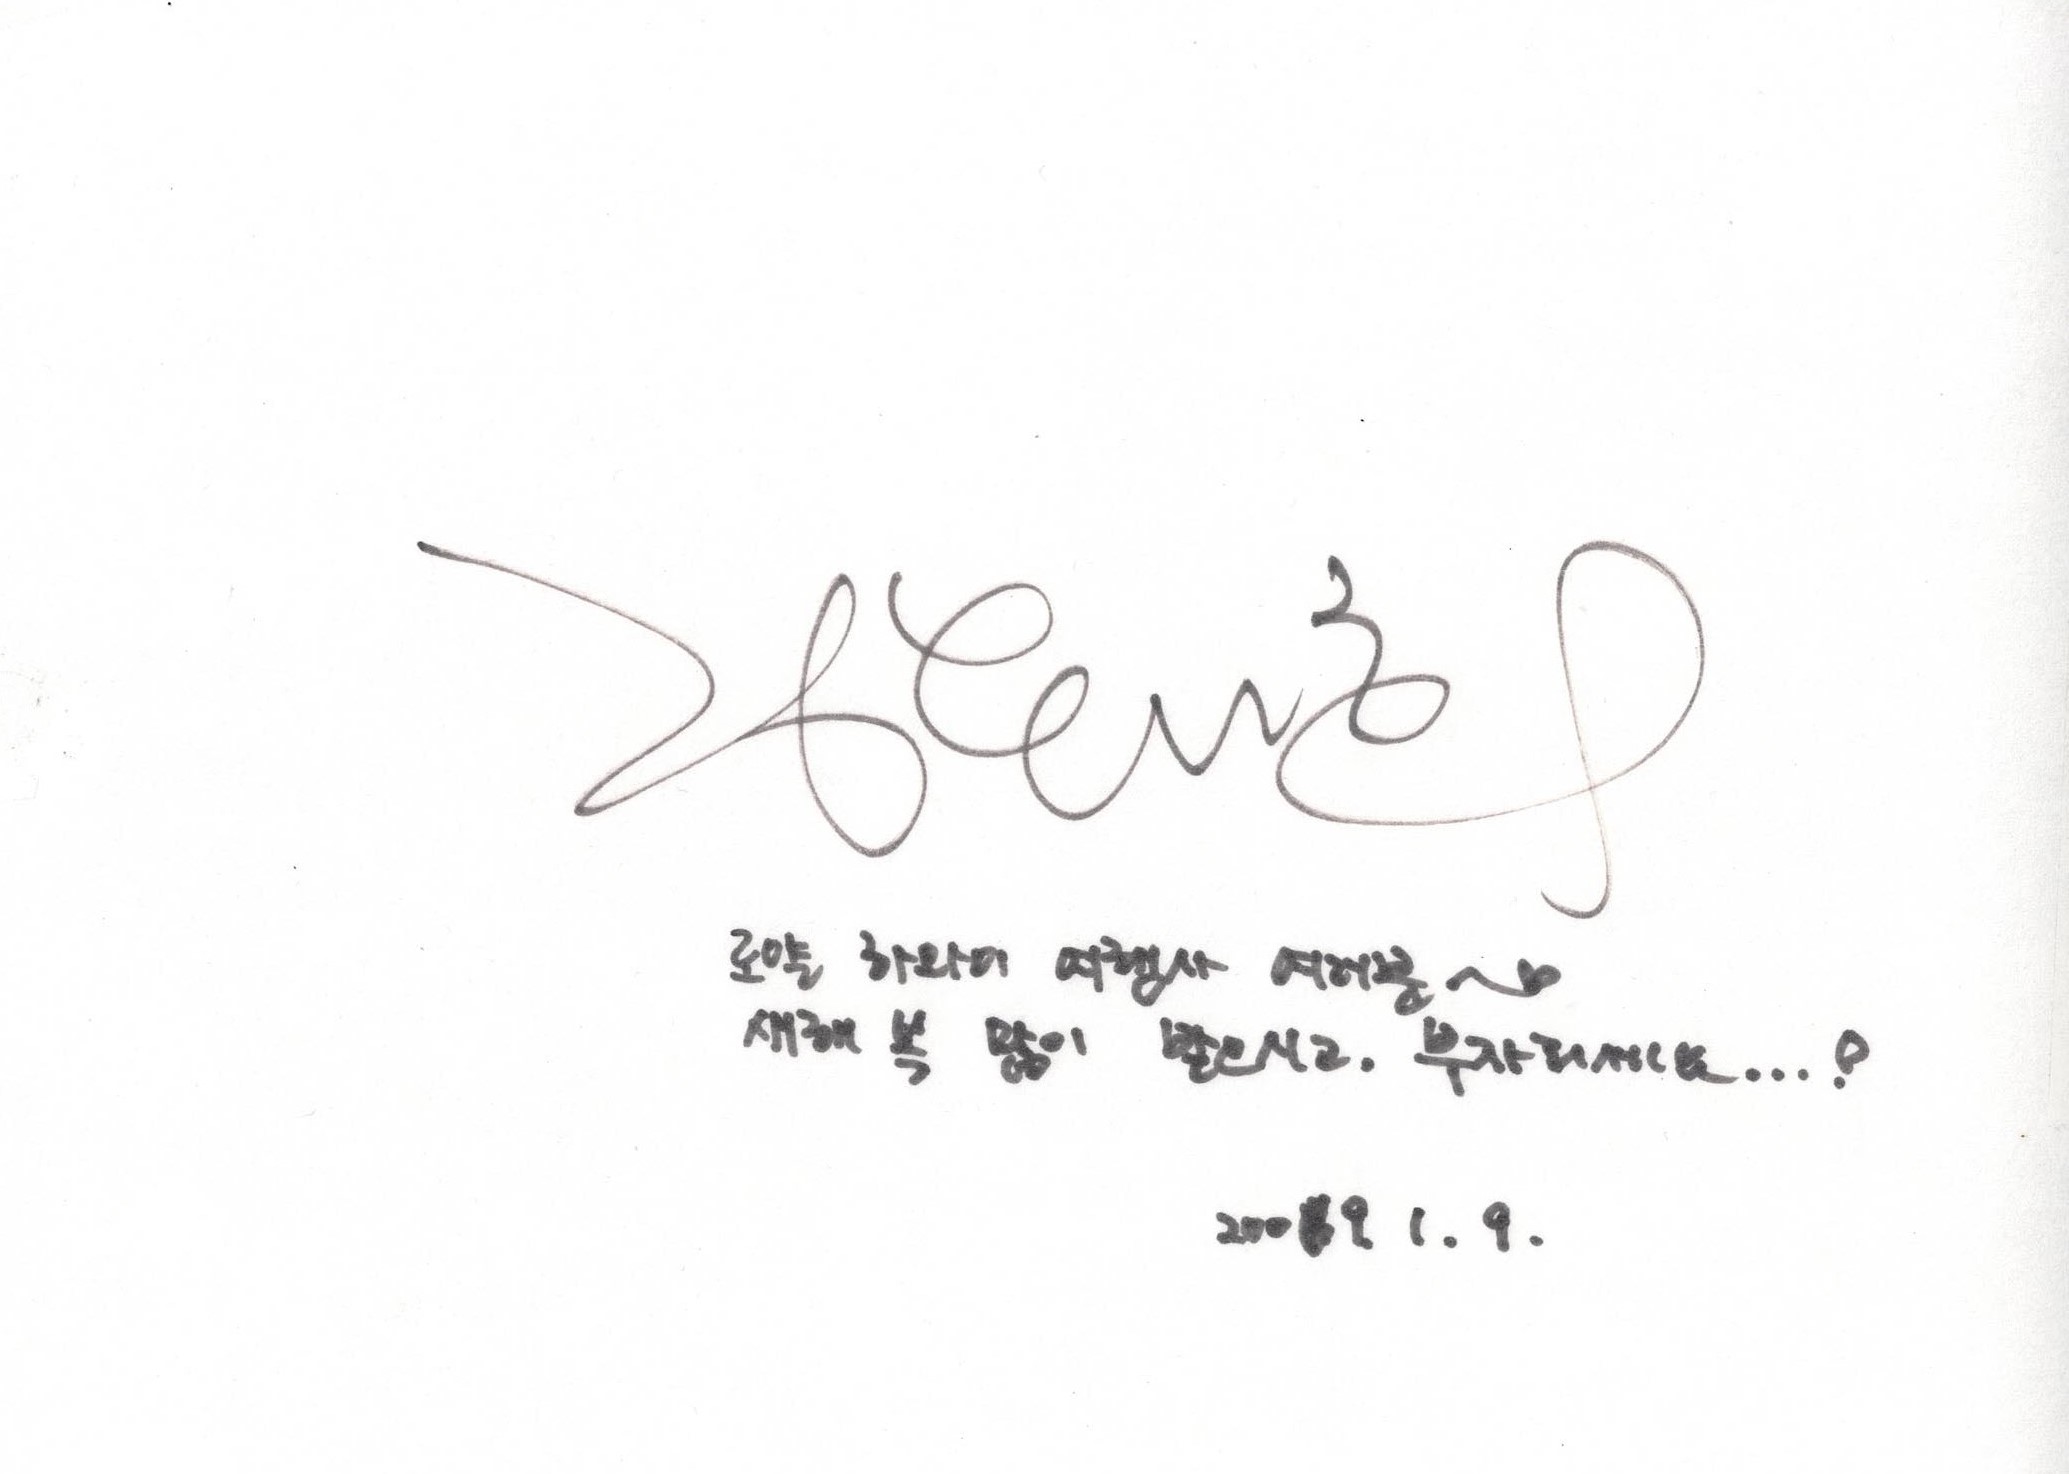 로얄 하와이 여행사 여러분~
새해 복 많이 받으시고. 부자되세요...!
2009 1. 9.